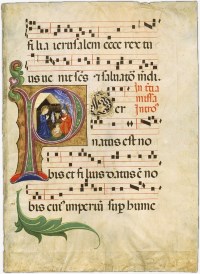 filia ierusalem ecce rex tu
us ue mases & saluatō mūdi.
In tercia
missa
Introi⁹
Puer
natus est no
bis et filius datus ē no
bis cuius imperiū sup hume